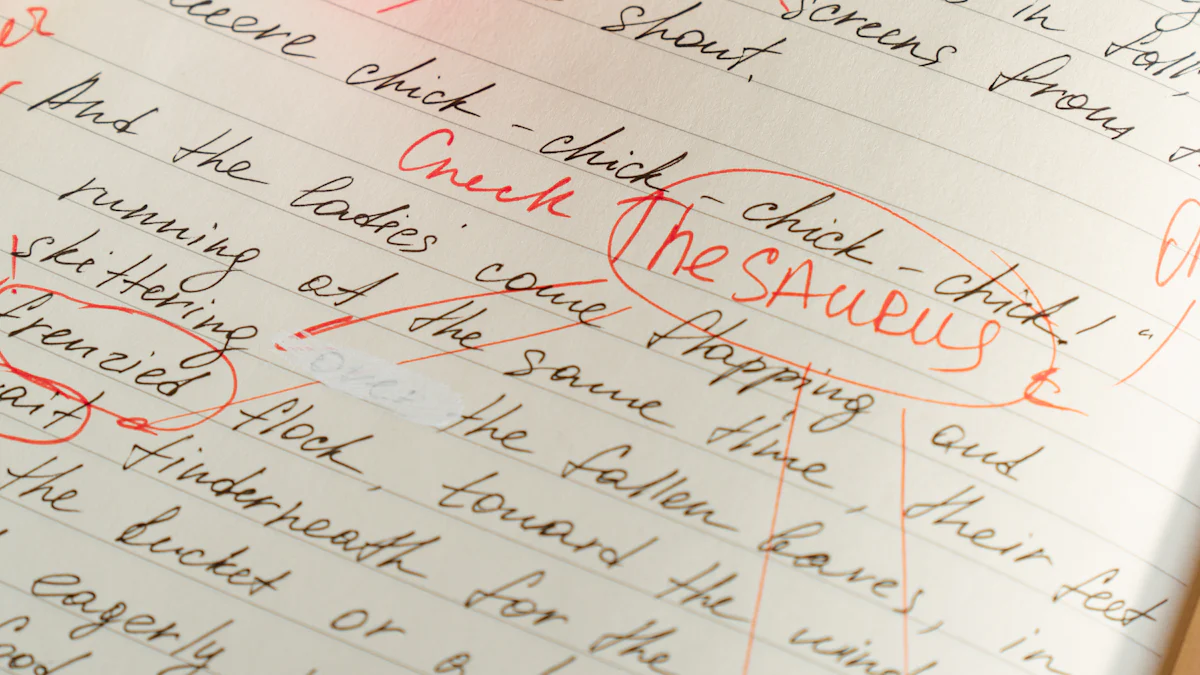 in fall,
screens from
shout.
chick-chick-chick-chick!"
Check Thesaurus
And the ladies come flapping and
running at the same time, their feet
skittering over the fallen leaves, in
frenzied flock, toward the wind
wait underneath for the
the bucket or a
eagerly